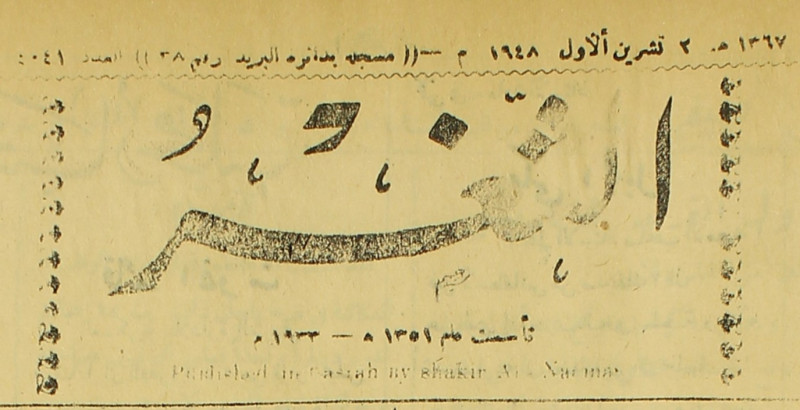 ١٣٦٧ هـ ٢ تشرين الأول ١٩٤٨ م —(( مسجله بدائره البريد رقم ٣٨ )) العدد ٤٠٤١
الثغر
تأسست عام ١٣٥١ ه — ١٩٣٣ م
Published in Basrah by Shakir